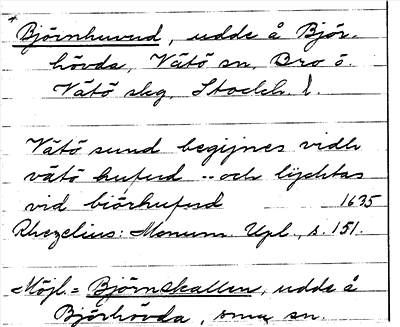 * Björnhuvud, udde å Björ-
hövda, Vätö sn, Bro o.
Vätö skg, Stockh. l.
Vätö sund begijnes vidh
vätö hufud -- och lÿchtas
vid biörhufud 1635
Rhezelius: Monum. Upl., s. 151.
Möjl. = Björnskallen, udde å
Björhövda, smma sn.